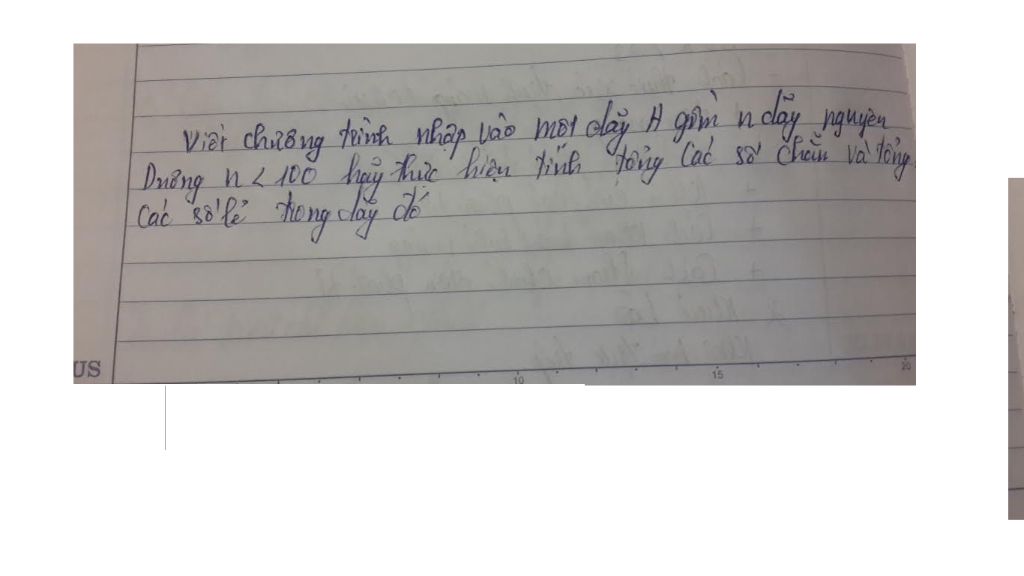 Viết chương trình nhập vào một dãy A gồm n dãy nguyên
Dương n < 100 hãy thực hiện tính tổng các số chẵn và tổng
các số lẻ trong dãy đó
US
10 15 20